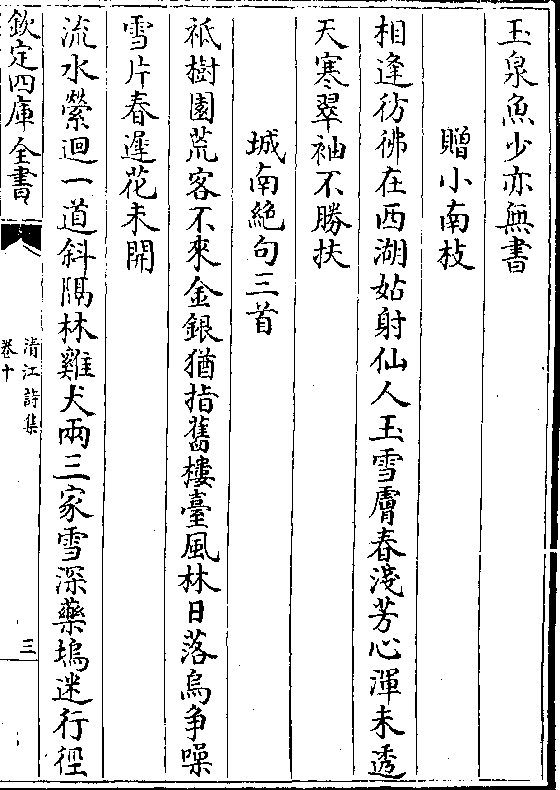 玉泉魚少亦無書
贈小南枝
相逢彷彿在西湖姑射仙人玉雪膚春淺芳心渾未透
天寒翠袖不勝扶
城南絶句三首
祗樹園荒客不來金銀猶指舊樓臺風林日落烏争噪
雪片春遲花未開
流水縈迴一道斜隔林雞犬兩三家雪深藥塢迷行徑
欽定四庫全書
清江詩集
卷十
三